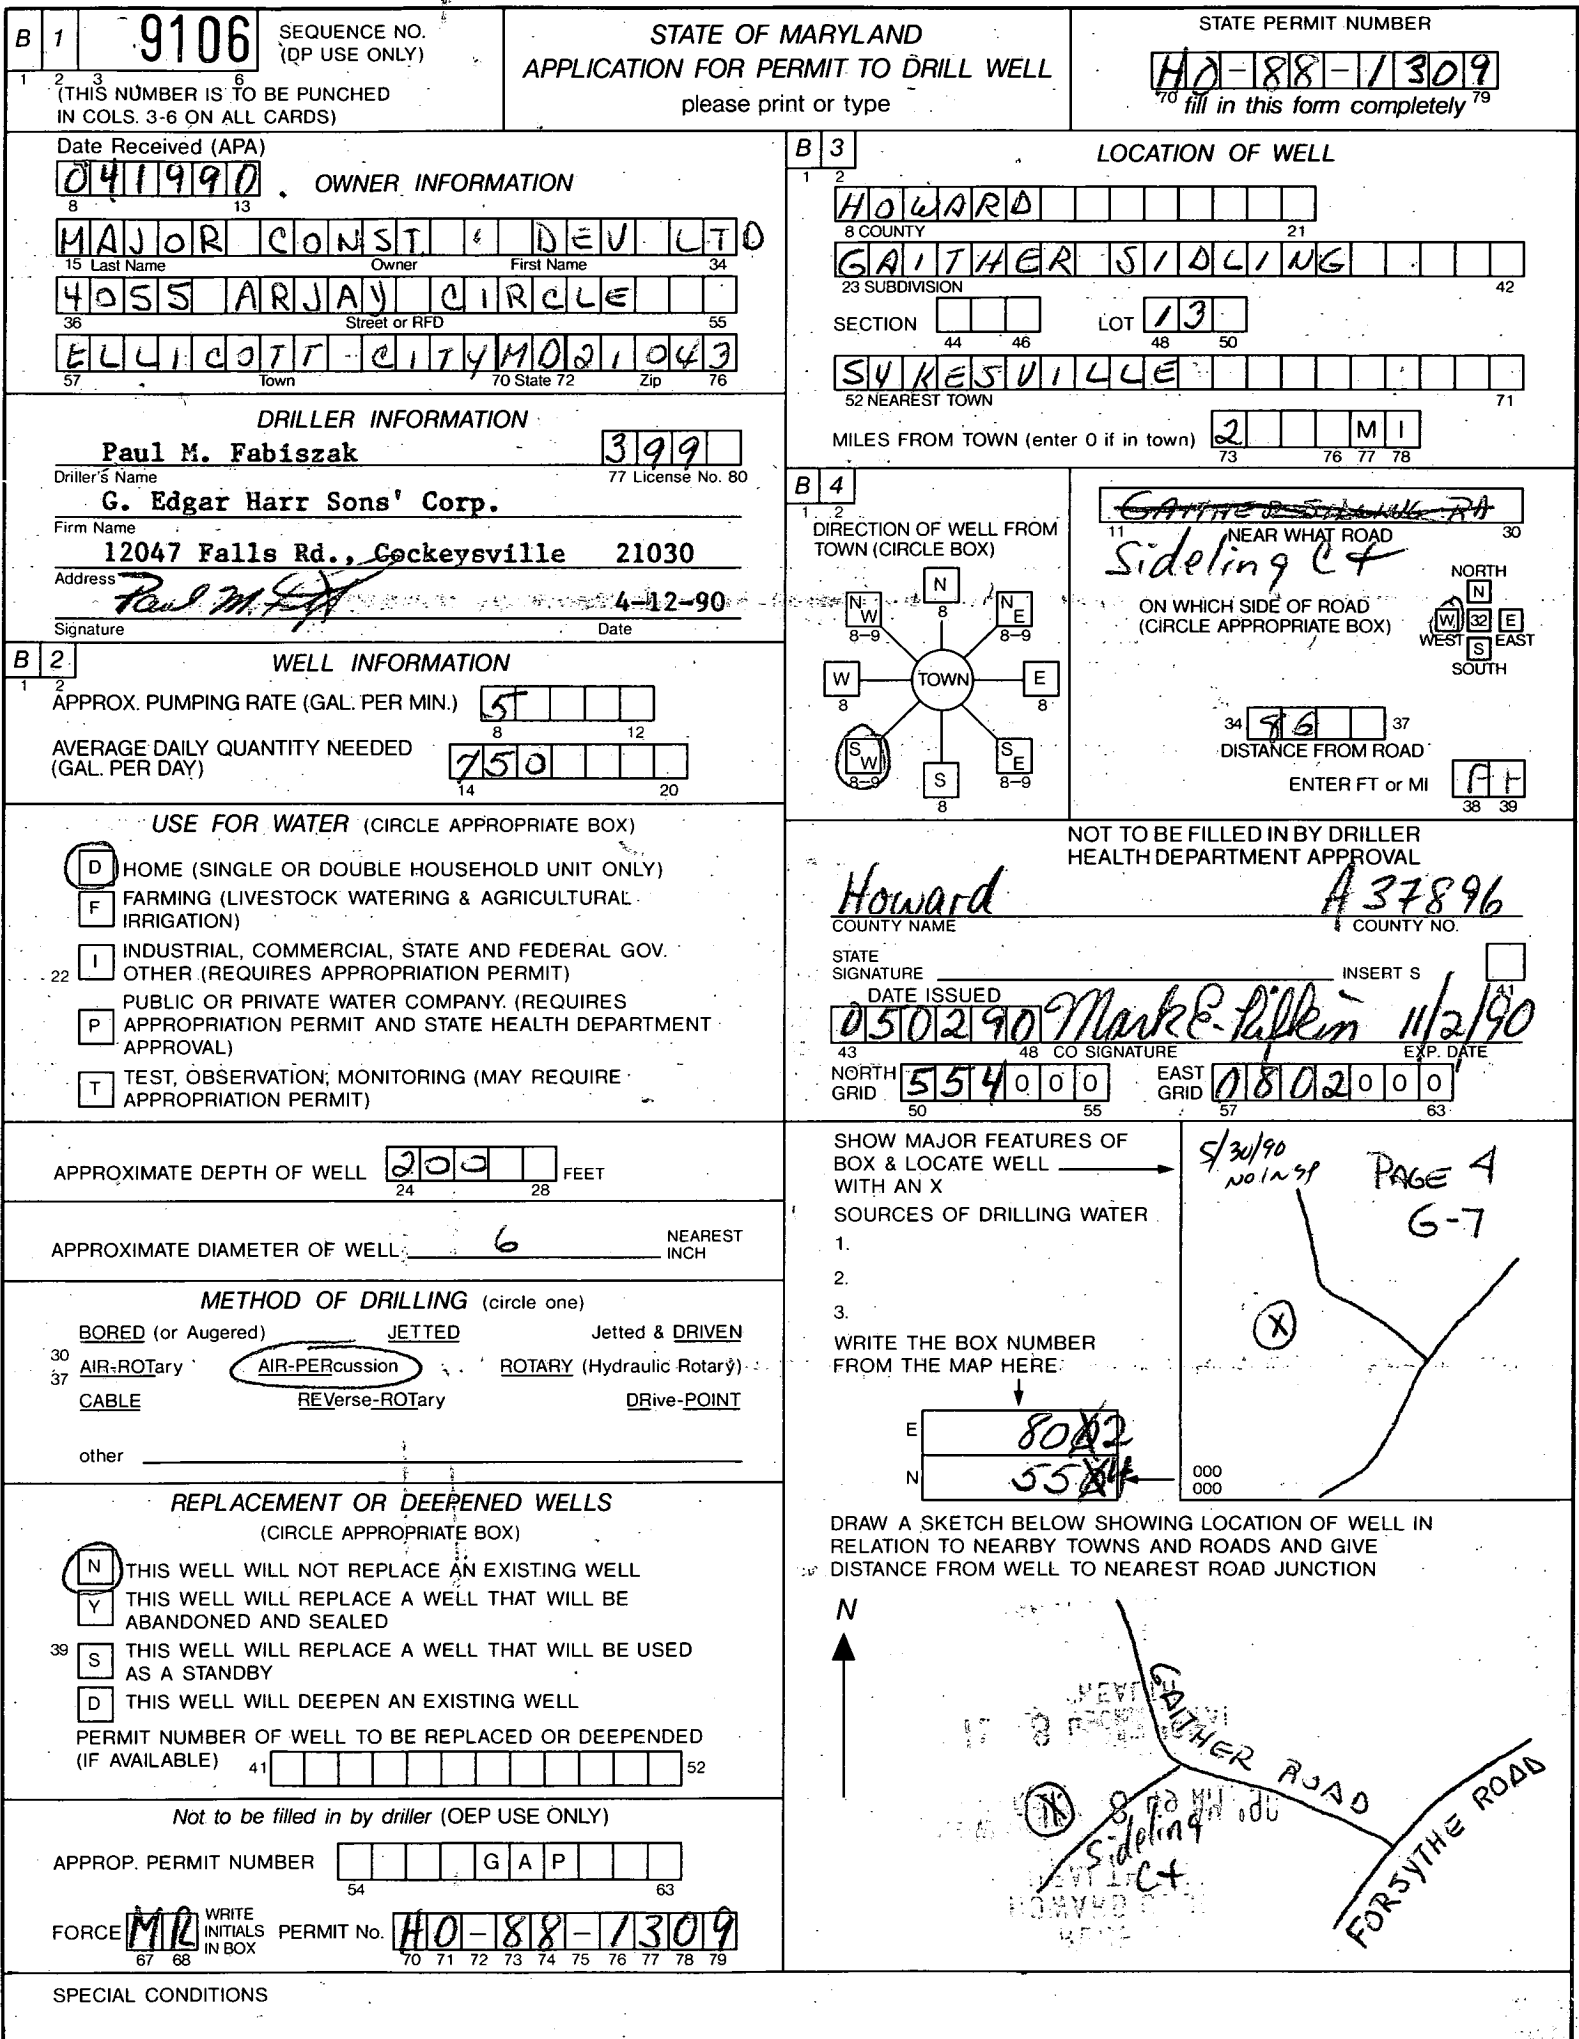 B 1 9106 SEQUENCE NO. (DP USE ONLY)
1 2 3 6
(THIS NUMBER IS TO BE PUNCHED
IN COLS. 3-6 ON ALL CARDS)
STATE OF MARYLAND
APPLICATION FOR PERMIT TO DRILL WELL
please print or type
STATE PERMIT NUMBER
HO-88-1309
70 fill in this form completely 79
Date Received (APA)
041990
8 13
OWNER INFORMATION
MAJOR CONST & DEV LTD
15 Last Name Owner First Name 34
4055 ARJAY CIRCLE
36 Street or RFD 55
ELLICOTT CITY MD 21043
57 Town 70 State 72 Zip 76
DRILLER INFORMATION
Paul M. Fabiszak 399
Driller's Name 77 License No. 80
G. Edgar Harr Sons' Corp.
Firm Name
12047 Falls Rd., Cockeysville 21030
Address
Paul M. 4-12-90
Signature Date
B 2 WELL INFORMATION
1 2
APPROX. PUMPING RATE (GAL. PER MIN.) 5
8 12
AVERAGE DAILY QUANTITY NEEDED
(GAL. PER DAY) 750
14 20
USE FOR WATER (CIRCLE APPROPRIATE BOX)
D HOME (SINGLE OR DOUBLE HOUSEHOLD UNIT ONLY)
F FARMING (LIVESTOCK WATERING & AGRICULTURAL
IRRIGATION)
22 I INDUSTRIAL, COMMERCIAL, STATE AND FEDERAL GOV.
OTHER (REQUIRES APPROPRIATION PERMIT)
P PUBLIC OR PRIVATE WATER COMPANY. (REQUIRES
APPROPRIATION PERMIT AND STATE HEALTH DEPARTMENT
APPROVAL)
T TEST, OBSERVATION, MONITORING (MAY REQUIRE
APPROPRIATION PERMIT)
APPROXIMATE DEPTH OF WELL 200 FEET
24 28
APPROXIMATE DIAMETER OF WELL 6 NEAREST
INCH
METHOD OF DRILLING (circle one)
BORED (or Augered) JETTED Jetted & DRIVEN
30
37
AIR-ROTary AIR-PERcussion ROTARY (Hydraulic Rotary)
CABLE REVerse-ROTary DRive-POINT
other
REPLACEMENT OR DEEPENED WELLS
(CIRCLE APPROPRIATE BOX)
N THIS WELL WILL NOT REPLACE AN EXISTING WELL
Y THIS WELL WILL REPLACE A WELL THAT WILL BE
ABANDONED AND SEALED
39 S THIS WELL WILL REPLACE A WELL THAT WILL BE USED
AS A STANDBY
D THIS WELL WILL DEEPEN AN EXISTING WELL
PERMIT NUMBER OF WELL TO BE REPLACED OR DEEPENED
(IF AVAILABLE) 41 52
Not to be filled in by driller (OEP USE ONLY)
APPROP. PERMIT NUMBER G A P
54 63
FORCE MR WRITE INITIALS IN BOX PERMIT No. HO-88-1309
67 68 70 71 72 73 74 75 76 77 78 79
SPECIAL CONDITIONS
B 3 LOCATION OF WELL
1 2
HOWARD
8 COUNTY 21
GAITHER SIDLING
23 SUBDIVISION 42
SECTION LOT 13
44 46 48 50
SYKESVILLE
52 NEAREST TOWN 71
MILES FROM TOWN (enter 0 if in town) 2 M I
73 76 77 78
B 4
1 2
DIRECTION OF WELL FROM
TOWN (CIRCLE BOX)
N
8
NW NE
8-9 8-9
W TOWN E
8 8
SW SE
8-9 8-9
S
8
GAITHER SIDLING RD
11 NEAR WHAT ROAD 30
Sideling Ct
ON WHICH SIDE OF ROAD
(CIRCLE APPROPRIATE BOX)
NORTH
N
W 32 E
WEST EAST
S
SOUTH
34 86 37
DISTANCE FROM ROAD
ENTER FT or MI Ft
38 39
NOT TO BE FILLED IN BY DRILLER
HEALTH DEPARTMENT APPROVAL
Howard A 37896
COUNTY NAME COUNTY NO.
STATE
SIGNATURE INSERT S
41
DATE ISSUED
050290 Mark E. Rifkin 11/2/90
43 48 CO SIGNATURE EXP. DATE
NORTH GRID 554000 EAST GRID 0802000
50 55 57 63
SHOW MAJOR FEATURES OF
BOX & LOCATE WELL
WITH AN X
SOURCES OF DRILLING WATER
1.
2.
3.
WRITE THE BOX NUMBER
FROM THE MAP HERE
E 802
N 554
5/30/90
NO INSP
PAGE 4
G-7
X
000
000
DRAW A SKETCH BELOW SHOWING LOCATION OF WELL IN
RELATION TO NEARBY TOWNS AND ROADS AND GIVE
DISTANCE FROM WELL TO NEAREST ROAD JUNCTION
N
GAITHER ROAD
X
Sideling
Ct
FORSYTHE ROAD